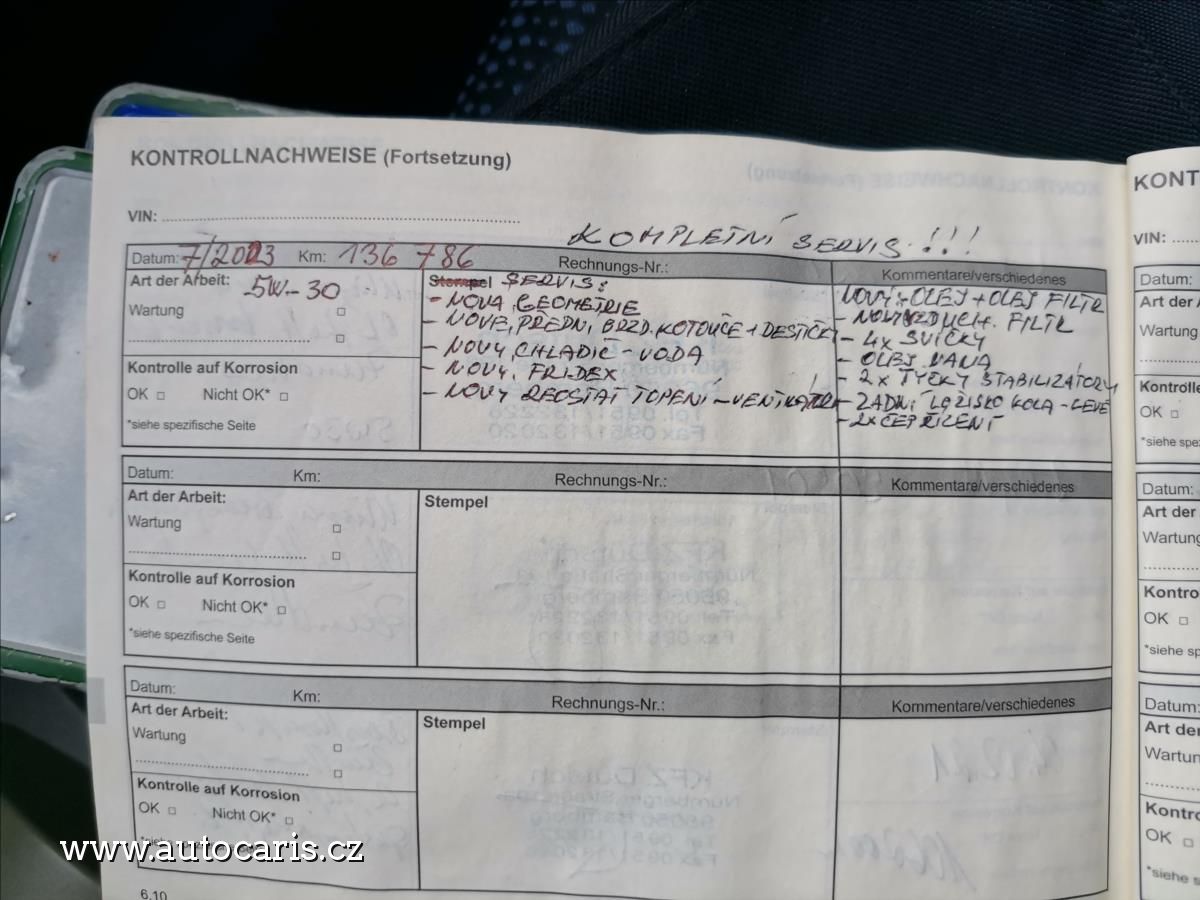 KONTROLLNACHWEISE (Fortsetzung)
KONT
VIN:
VIN:
KOMPLETNÍ SERVIS !!!
Datum: 7/2023 Km: 136 786 Rechnungs-Nr.: Kommentare/verschiedenes
Art der Arbeit: 5W-30
Wartung
Kontrolle auf Korrosion
OK Nicht OK*
*siehe spezifische Seite
Stempel SERVIS:
- NOVA GEOMETRIE
- NOVÉ, PŘEDNÍ, BRZD. KOTOUČE + DESTIČKY
- NOVÝ CHLADIČ - VODA
- NOVÝ, FRIDEX
- NOVÝ REOSTAT TOPENÍ -
NOVÝ - OLEJ + OLEJ FILTR
- NOVÝ VZDUCH. FILTR
- 4x SVÍČKY
- OLEJ. VANA
- 2x TYČKY STABILIZÁTORU
- ZADNÍ LOŽISKO KOLA - LEVÉ
- 2x ČEP ŘÍZENÍ
Datum:
Art der
Wartung
Kontrolle
OK
*siehe spez
Datum: Km: Rechnungs-Nr.: Kommentare/verschiedenes
Art der Arbeit:
Wartung
Kontrolle auf Korrosion
OK Nicht OK*
*siehe spezifische Seite
Stempel
Datum:
Art der
Wartung
Kontro
OK
*siehe sp
Datum: Km: Rechnungs-Nr.: Kommentare/verschiedenes
Art der Arbeit:
Wartung
Kontrolle auf Korrosion
OK Nicht OK*
Stempel
Datum:
Art der
Wartun
Kontro
OK
*siehe
www.autocaris.cz
6.10